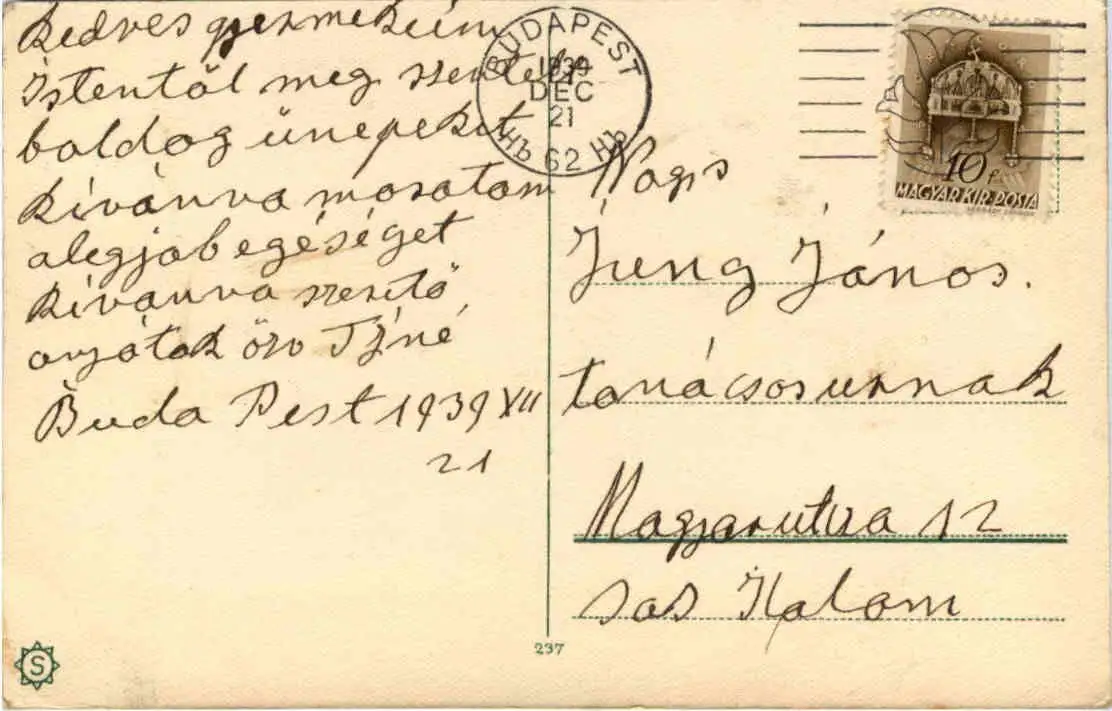 kedves gyermekeim
Istentöl meg szentelt
boldog ünepeket
kivánva mosatam
alegjob egéséget
kivánva szerető
anyátok özv
Buda Pest 1939 XII
21
BUDAPEST
1939
DEC
21
62
10 f.
MAGYAR KIR. POSTA
Nags
Jung János.
tanácsosurnak
Magyarutza 12
sas Halom
237
S